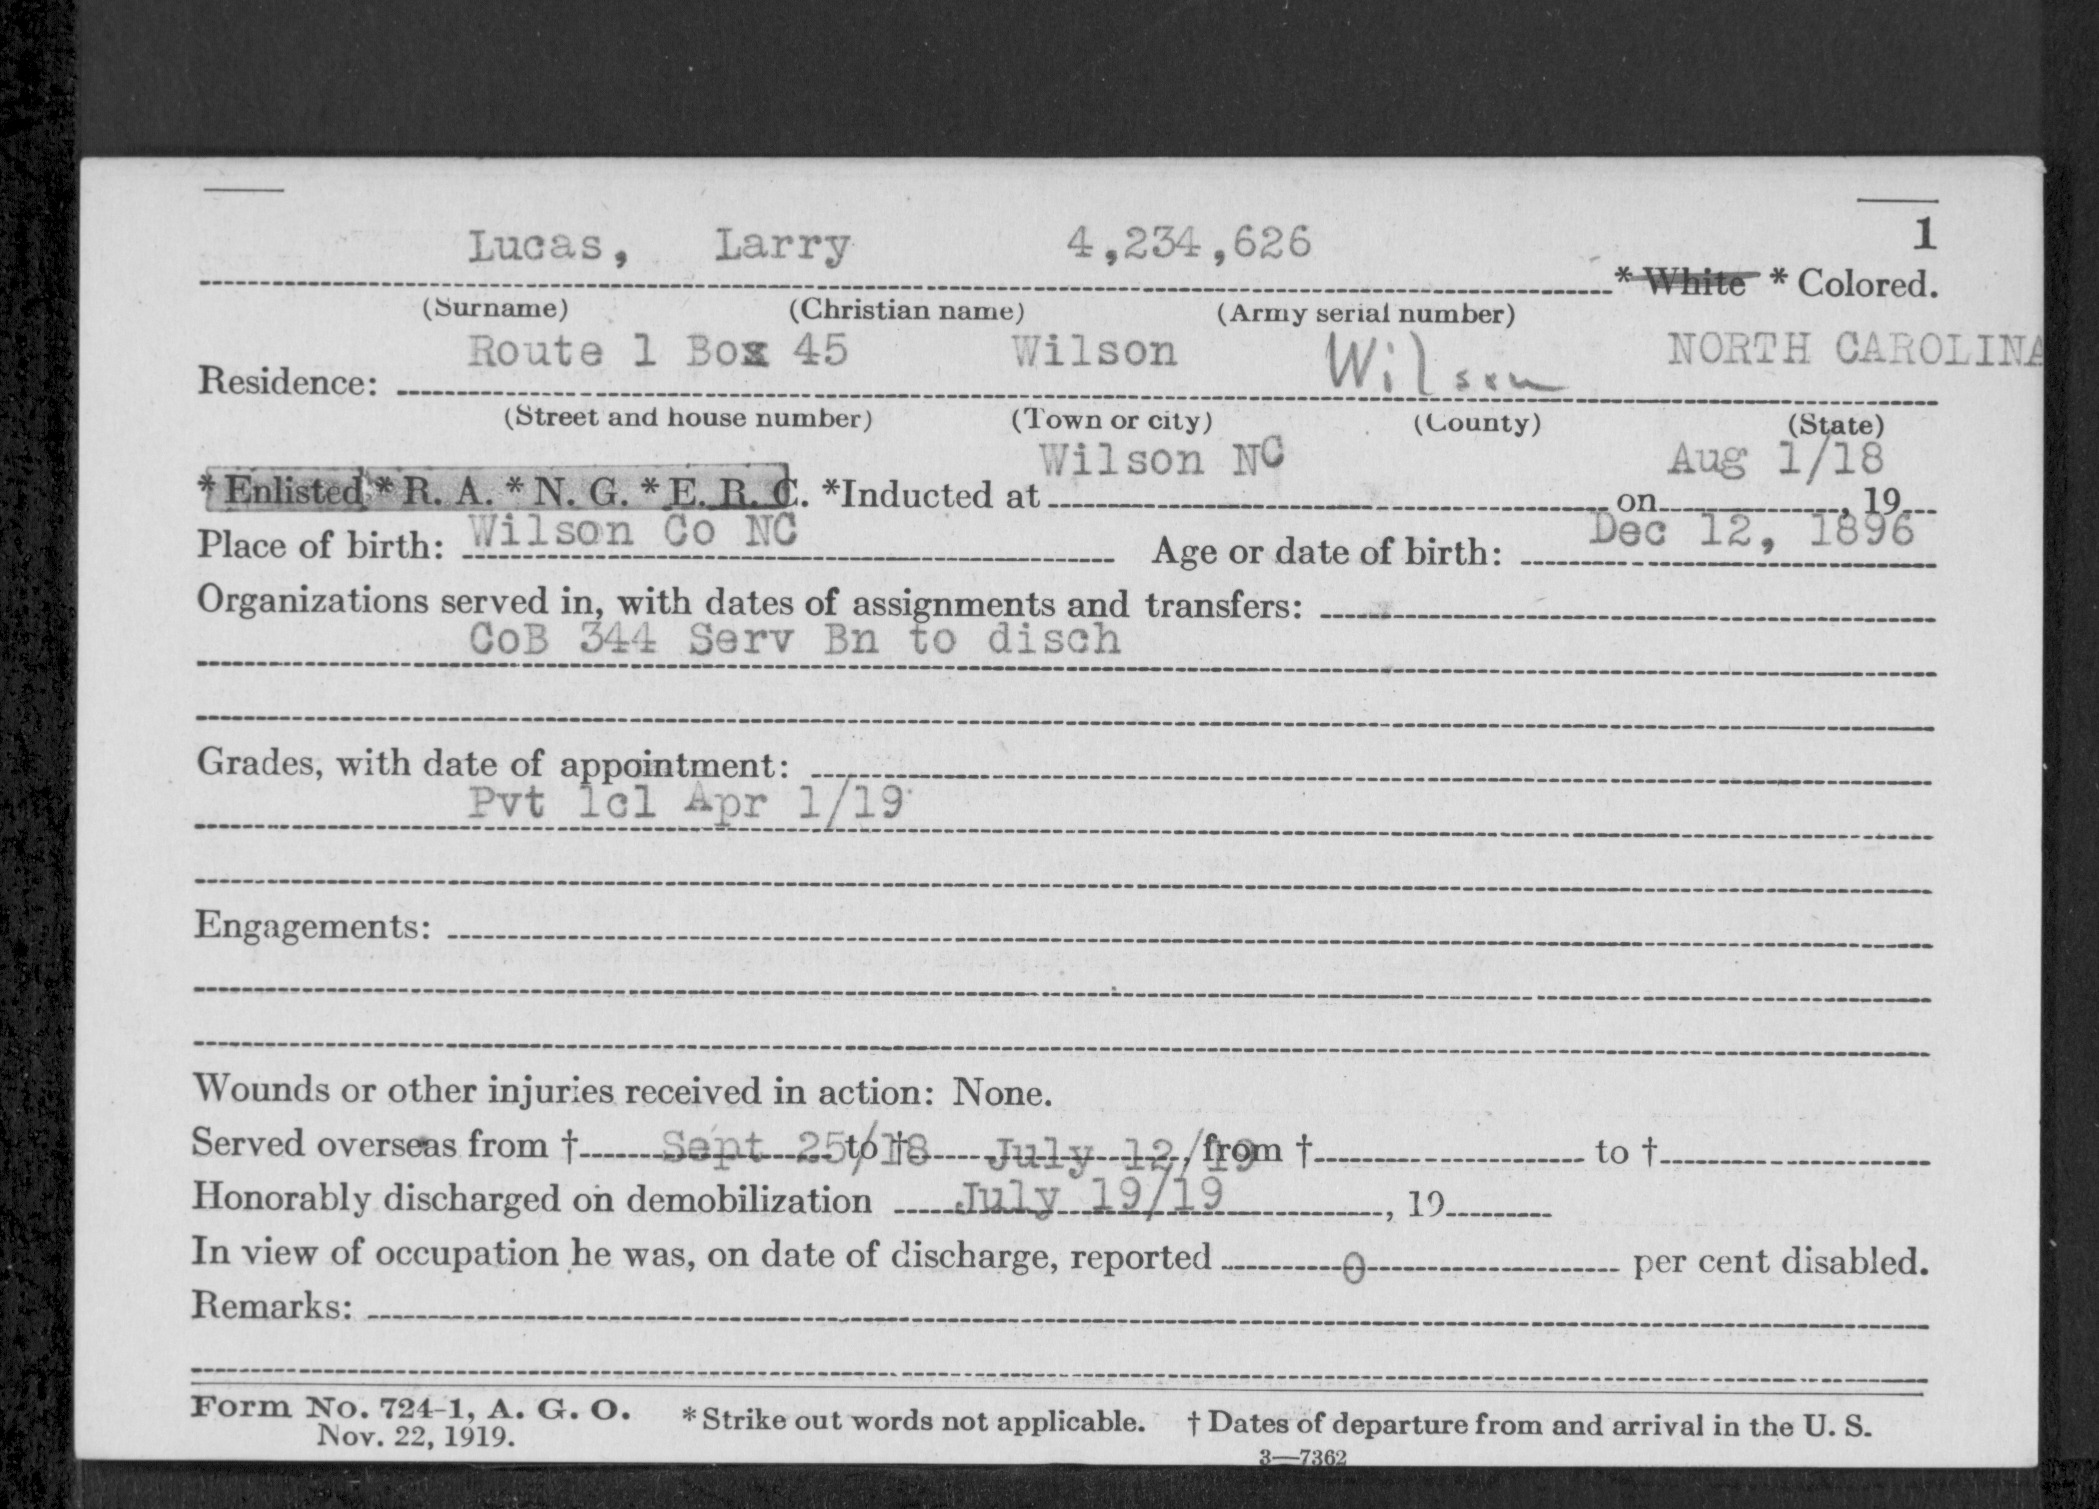 1
Lucas, Larry 4,234,626 * White * Colored.
(Surname) (Christian name) (Army serial number)
Residence: Route 1 Box 45 Wilson Wilson NORTH CAROLINA
(Street and house number) (Town or city) (County) (State)
* Enlisted * R. A. * N. G. * E. R. C. *Inducted at Wilson NC on Aug 1/18, 19
Place of birth: Wilson Co NC Age or date of birth: Dec 12, 1896
Organizations served in, with dates of assignments and transfers:
CoB 344 Serv Bn to disch
Grades, with date of appointment:
Pvt 1cl Apr 1/19
Engagements:
Wounds or other injuries received in action: None.
Served overseas from † Sept 25/18 to † July 12/19, from † to †
Honorably discharged on demobilization July 19/19, 19
In view of occupation he was, on date of discharge, reported 0 per cent disabled.
Remarks:
Form No. 724-1, A. G. O. * Strike out words not applicable. † Dates of departure from and arrival in the U. S.
Nov. 22, 1919.
3—7362